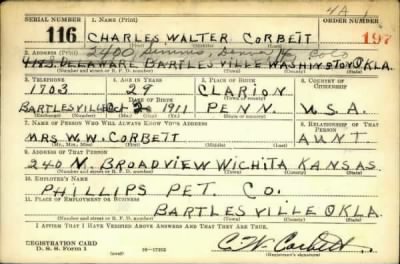 4A 1
SERIAL NUMBER 1. NAME (Print) ORDER NUMBER
116 CHARLES WALTER CORBETT 197
(First) (Middle) (Last)
2. ADDRESS (Print) 2400 Denver Colo
DELAWARE BARTLESVILLE WASHINGTON OKLA.
(Number and street or R. F. D. number) (Town) (County) (State)
3. TELEPHONE 4. AGE IN YEARS 5. PLACE OF BIRTH 6. COUNTRY OF CITIZENSHIP
1703 29 CLARION
DATE OF BIRTH (Town or county)
BARTLESVILLE Oct 2 1911 PENN. U.S.A.
(Exchange) (Number) (Mo.) (Day) (Yr.) (State or country)
7. NAME OF PERSON WHO WILL ALWAYS KNOW YOUR ADDRESS 8. RELATIONSHIP OF THAT PERSON
MRS W.W. CORBETT AUNT
(Mr., Mrs., Miss) (First) (Middle) (Last)
9. ADDRESS OF THAT PERSON
240 N. BROADVIEW WICHITA KANSAS
(Number and street or R. F. D. number) (Town) (County) (State)
10. EMPLOYER'S NAME
PHILLIPS PET. CO.
11. PLACE OF EMPLOYMENT OR BUSINESS
BARTLESVILLE OKLA.
(Number and street or R. F. D. number) (Town) (County) (State)
I AFFIRM THAT I HAVE VERIFIED ABOVE ANSWERS AND THAT THEY ARE TRUE.
REGISTRATION CARD
D. S. S. Form 1 (over) 16—17105 C. W. Corbett
(Registrant's signature)